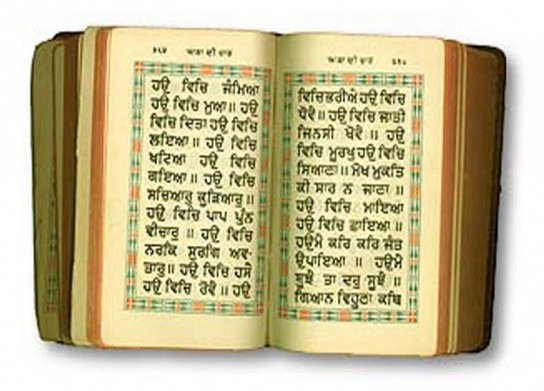 ੬੧੭ ਆਸਾ ਦੀ ਵਾਰ
ਹਉ ਵਿਚਿ ਜੰਮਿਆ
ਹਉ ਵਿਚਿ ਮੁਆ॥ ਹਉ
ਵਿਚਿ ਦਿਤਾ ਹਉ ਵਿਚਿ
ਲਇਆ॥ ਹਉ ਵਿਚਿ
ਖਟਿਆ ਹਉ ਵਿਚਿ
ਗਇਆ॥ ਹਉ ਵਿਚਿ
ਸਚਿਆਰੁ ਕੂੜਿਆਰੁ॥
ਹਉ ਵਿਚਿ ਪਾਪ ਪੁੰਨ
ਵੀਚਾਰੁ॥ ਹਉ ਵਿਚਿ
ਨਰਕਿ ਸੁਰਗਿ ਅਵ-
ਤਾਰੁ॥ ਹਉ ਵਿਚਿ ਹਸੈ
ਹਉ ਵਿਚਿ ਰੋਵੈ॥ ਹਉ
ਆਸਾ ਦੀ ਵਾਰ ੬੧੮
ਵਿਚਿਭਰੀਐ ਹਉ ਵਿਚਿ
ਧੋਵੈ॥ ਹਉ ਵਿਚਿ ਜਾਤੀ
ਜਿਨਸੀ ਖੋਵੈ॥ ਹਉ
ਵਿਚਿ ਮੂਰਖੁ ਹਉ ਵਿਚਿ
ਸਿਆਣਾ॥ ਮੋਖ ਮੁਕਤਿ
ਕੀ ਸਾਰ ਨ ਜਾਣਾ॥
ਹਉ ਵਿਚਿ ਮਾਇਆ
ਹਉ ਵਿਚਿ ਛਾਇਆ॥
ਹਉਮੈ ਕਰਿ ਕਰਿ ਜੰਤ
ਉਪਾਇਆ॥ ਹਉਮੈ
ਬੂਝੈ ਤਾ ਦਰੁ ਸੂਝੈ॥
ਗਿਆਨ ਵਿਹੂਣਾ ਕਥਿ